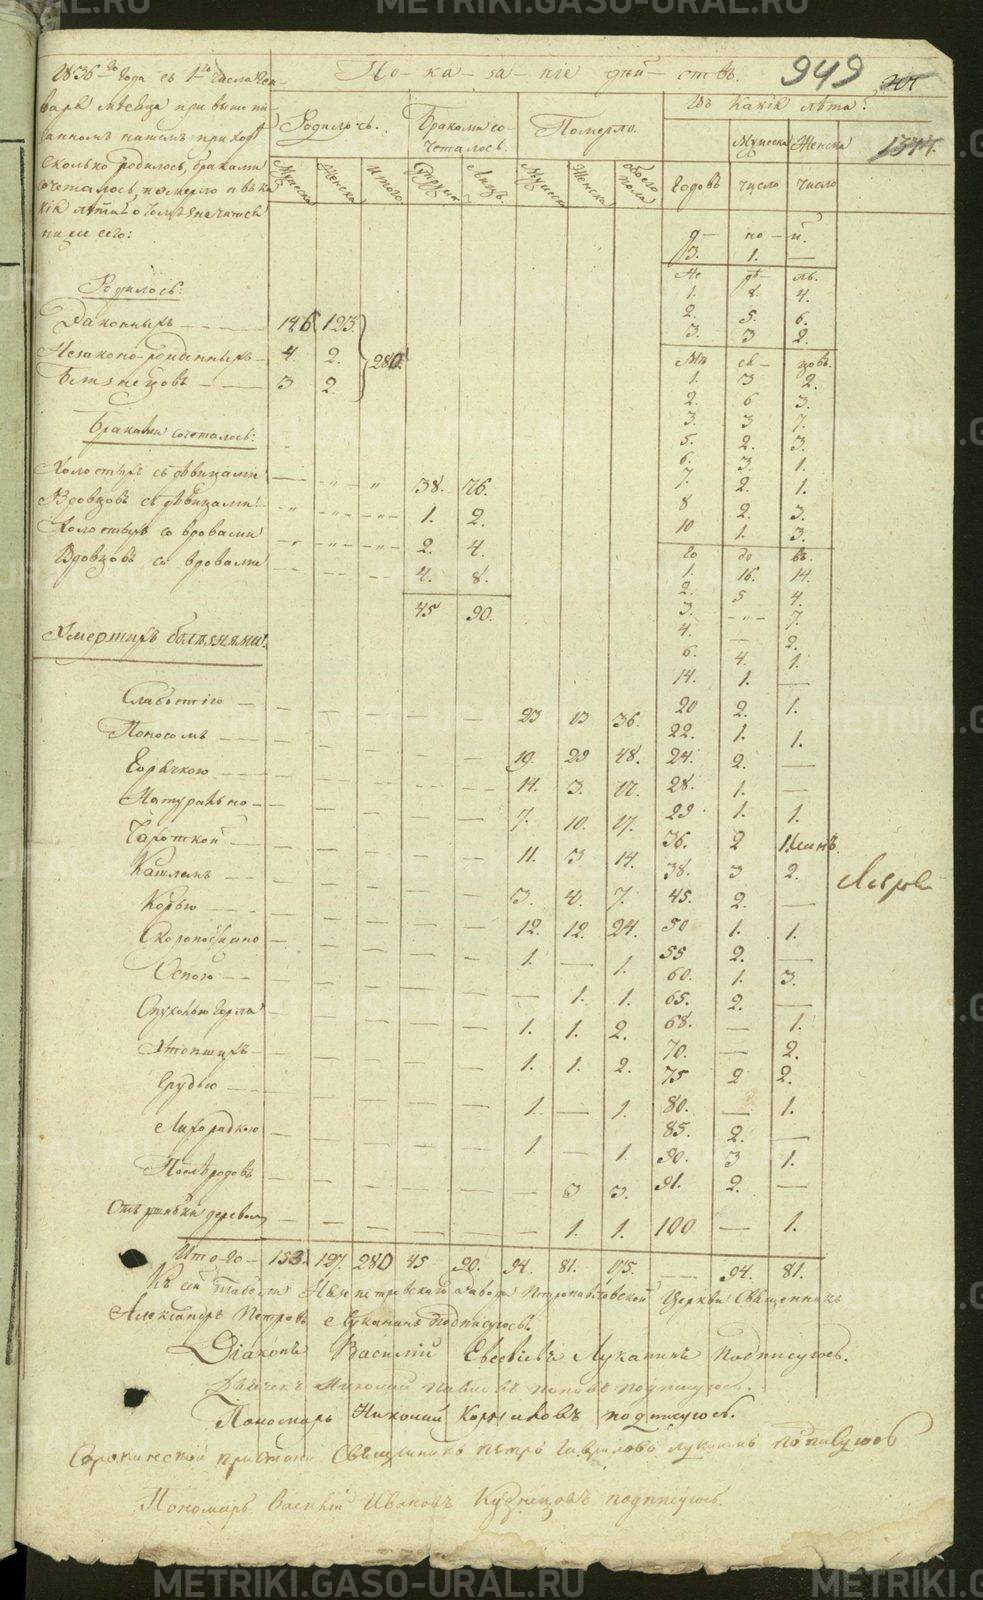 METRIKI.GASO-URAL.RU
По-ка-за-ніе дѣй-ствъ.
949
1836го Года съ 1го числа Ген-
варя мѣсяца при выше пи-
санномъ нашемъ приходѣ
сколько родилось, браками
сочеталось, померло и въ ка-
кія лѣта о томъ значится
ниже сего:
Родилось. Браками со-
четалось. Померло. Въ какія лѣта?
Мужеска Женска Итого. Лицъ. Мужеска Женска Обоего пола Годовъ Мужеска число Женска число
д- но- й.
3. 1. —
Не дѣ- ль.
1. 8. 4.
2. 5. 6.
3. 3 2.
Мѣ ся- цовъ.
1. 3 2.
2. 6 3.
3. 3 7.
5. 2. 3.
6. 3. 1.
7. 2. 1.
8 2. 3.
10 1. 3.
Го до въ.
1. 16. 14.
2. 5 4.
3. 7.
4. — 2.
6. 4. 1.
14. 1. —
20 2. 1.
22. 1. 1.
24. 2. —
28. 1. —
29 1. 1.
36. 2
38. 3 2.
45. 2. —
50 1. 1.
55 2. —
60. 1. 3.
65. 2. —
68. — 1.
70. — 2.
75 2 2.
80. — 1.
85. 2. —
90. 3 1.
91. 2. —
100 — 1.
Родилось:
Законныхъ 146 123.
Незаконо-рожденныхъ 4 2. 280.
Близнецовъ 3 2.
Браками сочеталось:
Холостыхъ съ дѣвицами 38. 76.
Вдовцовъ съ дѣвицами 1. 2.
Холостыхъ со вдовами 2. 4.
Вдовцовъ со вдовами 4. 8.
45 90.
Умершихъ болѣзнями:
Слабостію 23 13 36.
Поносомъ 19. 29 48.
Горячкою 14. 3. 17.
Натурально 7. 10. 17.
Чахоткой 11. 3 14.
Кашлемъ 3. 4. 7.
Корью 12. 12. 24.
Скоропостижно 1. — 1.
Оспою — 1. 1.
Опухолью горла 1. 1. 2.
Утопшихъ 1. 1. 2.
Грудью 1. — 1.
Лихорадкою 1. — 1.
Послѣ родовъ — 3 3.
деревомъ — 1. 1.
Ито-го 153. 127. 280 45 90. 94. 81. 175. — 94. 81.
Къ сей табели Нязепетровскаго завода Петропавловской Церкви Священникъ
Александръ Петровъ Луканинъ подписуюсь.
Діаконъ Василій Евсевіевъ Луканинъ подписуюсь.
Дьячекъ Николай Павловъ Поповъ подписуюсь.
Пономарь Николай подписуюсь.
Сорокинской пристани Священникъ Петръ Гавриловъ Луканинъ подписуюсь
Пономарь Василій Ивановъ Кузнецовъ подписуюсь.
METRIKI.GASO-URAL.RU